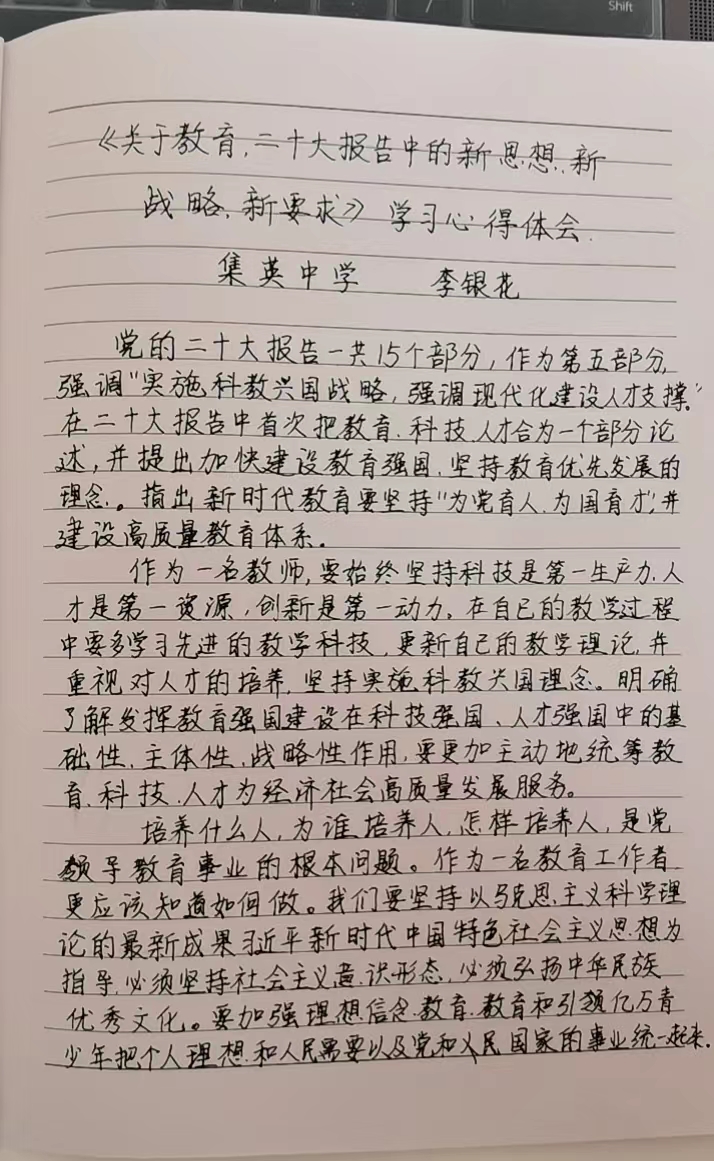 Shift
《关于教育,二十大报告中的新思想、新
战略、新要求》学习心得体会.
集英中学 李银花
党的二十大报告一共15个部分,作为第五部分,
强调“实施科教兴国战略,强调现代化建设人才支撑。”
在二十大报告中首次把教育、科技、人才合为一个部分论
述,并提出加快建设教育强国、坚持教育优先发展的
理念。指出新时代教育要坚持“为党育人、为国育才”,并
建设高质量教育体系。
作为一名教师,要始终坚持科技是第一生产力、人
才是第一资源,创新是第一动力。在自己的教学过程
中要多学习先进的教学科技,更新自己的教学理论,并
重视对人才的培养,坚持实施科教兴国理念。明确
了解发挥教育强国建设在科技强国、人才强国中的基
础性、主体性、战略性作用,要更加主动地统筹教
育、科技、人才为经济社会高质量发展服务。
培养什么人,为谁培养人,怎样培养人,是党
领导教育事业的根本问题。作为一名教育工作者
更应该知道如何做。我们要坚持以马克思主义科学理
论的最新成果习近平新时代中国特色社会主义思想为
指导,必须坚持社会主义意识形态,必须弘扬中华民族
优秀文化。要加强理想信念教育、教育和引领亿万青
少年把个人理想和人民需要以及党和人民国家的事业统一起来.